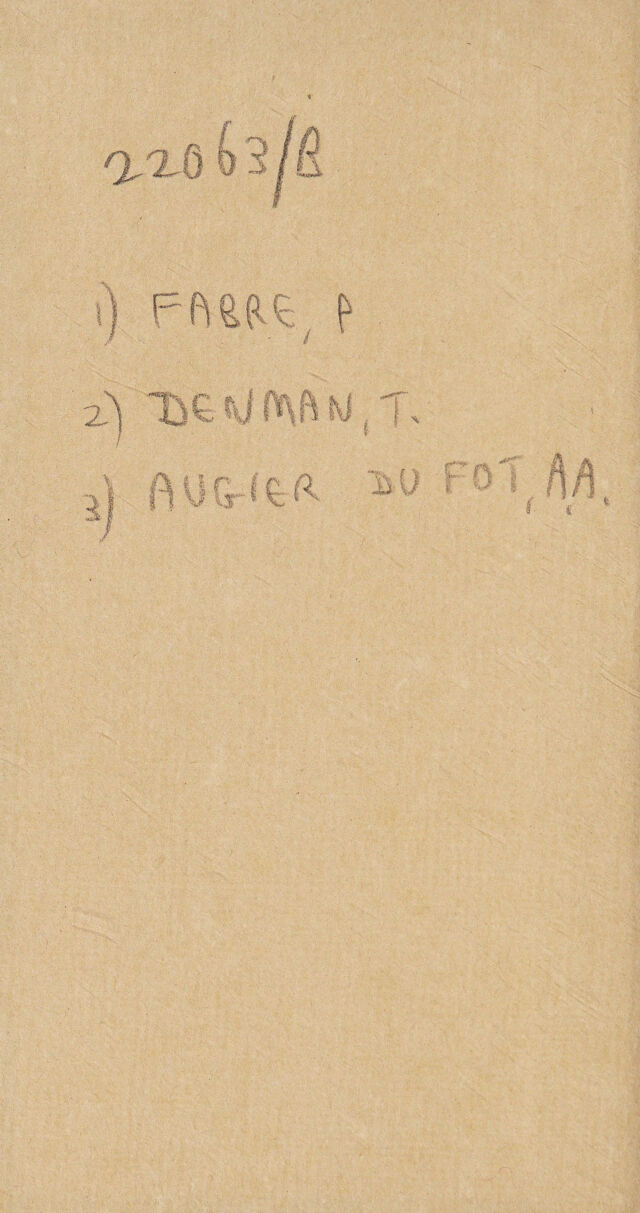 22063/B
1) FABRE, P
2) DENMAN, T.
3) AUGIER DU FOT, A.A.